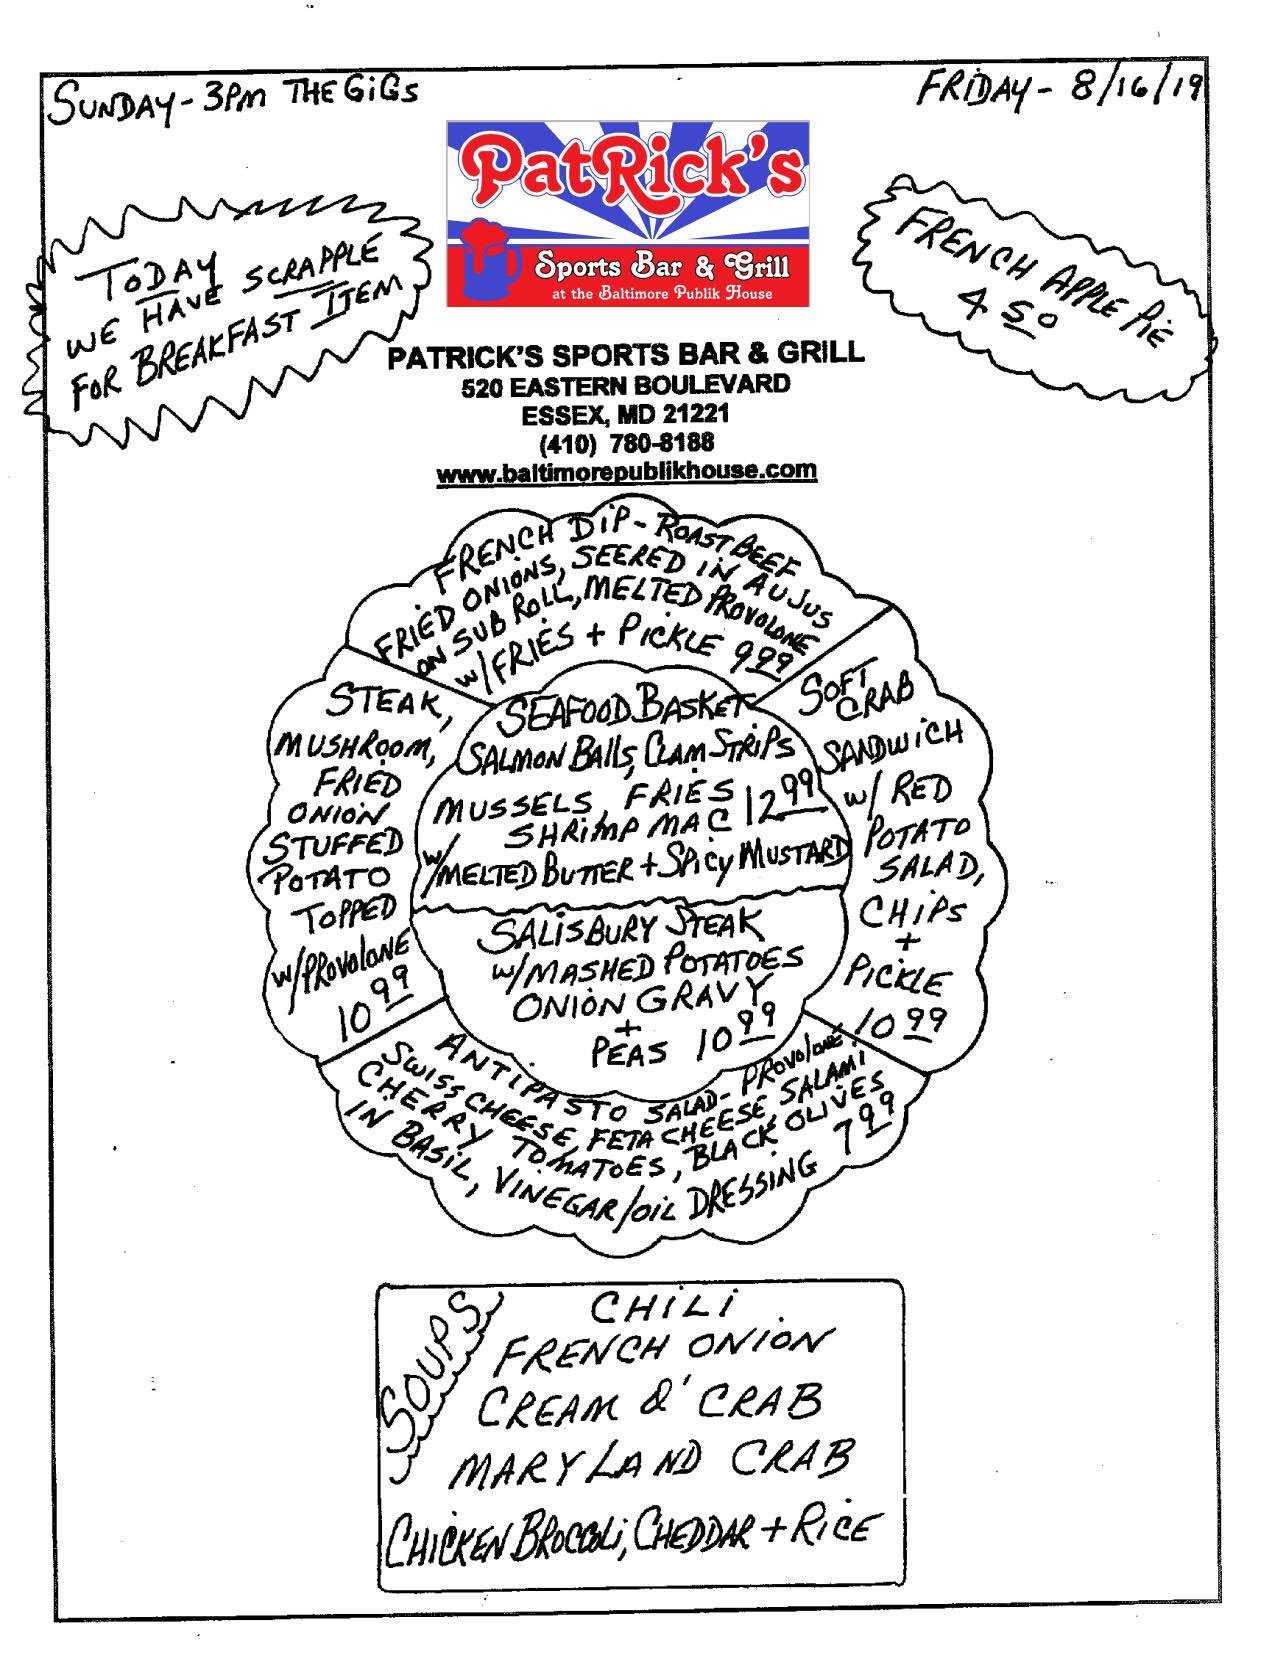 SUNDAY - 3PM THE GIGS
FRIDAY - 8/16/19
PatRick's
Sports Bar & Grill
at the Baltimore Publik House
TODAY
WE HAVE SCRAPPLE
FOR BREAKFAST ITEM
FRENCH APPLE PIE
4 50
PATRICK'S SPORTS BAR & GRILL
520 EASTERN BOULEVARD
ESSEX, MD 21221
(410) 780-8188
www.baltimorepublikhouse.com
FRENCH DIP - ROAST BEEF
FRIED ONIONS, SEERED IN AUJUS
ON SUB ROLL, MELTED PROVOLONE
W/FRIES + PICKLE 9 99
STEAK,
MUSHROOM,
FRIED
ONION
STUFFED
POTATO
TOPPED
W/PROVOLONE
10 99
SEAFOOD BASKET
SALMON BALLS, CLAM STRIPS
MUSSELS, FRIES
SHRIMP MAC 12 99
W/MELTED BUTTER + SPICY MUSTARD
SOFT
CRAB
SANDWICH
W/ RED
POTATO
SALAD,
CHIPS
+
PICKLE
10 99
SALISBURY STEAK
W/MASHED POTATOES
ONION GRAVY
+
PEAS 10 99
ANTIPASTO SALAD - PROVOLONE
SWISS CHEESE, FETA CHEESE, SALAMI
CHERRY TOMATOES, BLACK OLIVES
IN BASIL, VINEGAR/OIL DRESSING 7 99
SOUPS
CHILI
FRENCH ONION
CREAM O' CRAB
MARYLAND CRAB
CHICKEN BROCCOLI, CHEDDAR + RICE